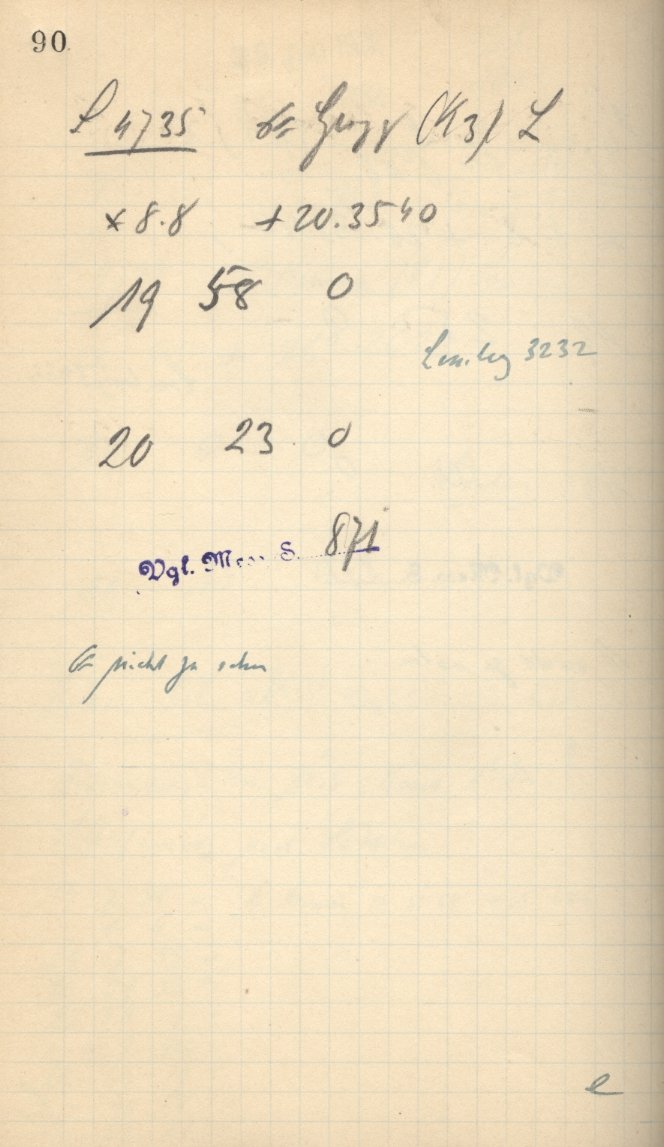 90
P 4735 (K3) L
* 8.8 + 20.3540
19 58 0
3232
20 23 0
Vgl. S. 871
nicht zu sehen
e